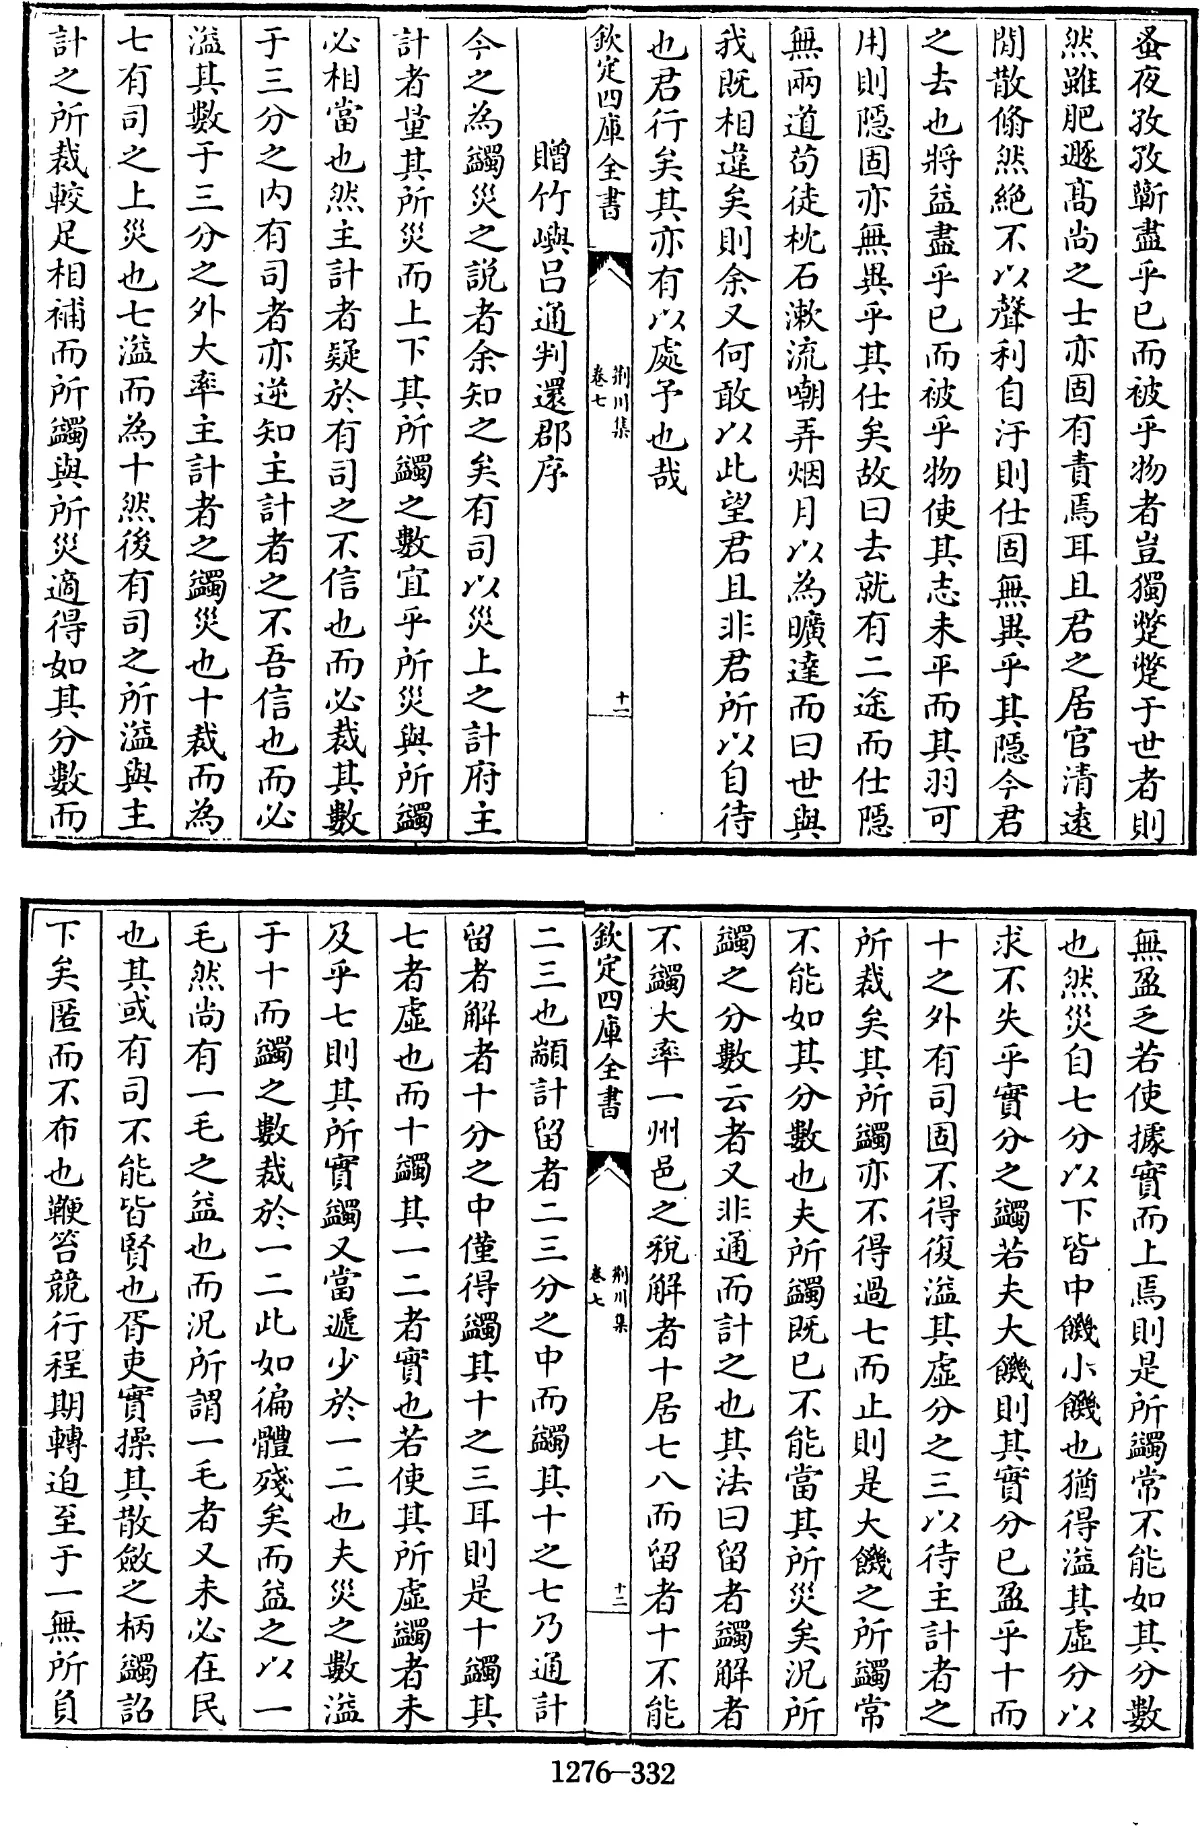 蚤夜孜孜蘄盡乎已而被乎物者豈獨蹩蹩于世者則
然雖肥遯髙尚之士亦固有責焉耳且君之居官清逺
閒散翛然絶不以聲利自汙則仕固無異乎其隠今君
之去也將益盡乎已而被乎物使其志未平而其羽可
用則隠固亦無異乎其仕矣故曰去就有二途而仕隠
無兩道茍徒枕石漱流嘲弄烟月以為曠達而曰世與
我既相違矣則余又何敢以此望君且非君所以自待
也君行矣其亦有以處予也哉
欽定四庫全書
荆川集
卷七
十一
贈竹嶼吕通判還郡序
今之為蠲災之説者余知之矣有司以災上之計府主
計者量其所災而上下其所蠲之數宜乎所災與所蠲
必相當也然主計者疑於有司之不信也而必裁其數
于三分之内有司者亦逆知主計者之不吾信也而必
溢其數于三分之外大率主計者之蠲災也十裁而為
七有司之上災也七溢而為十然後有司之所溢與主
計之所裁較足相補而所蠲與所災適得如其分數而
無盈乏若使據實而上焉則是所蠲常不能如其分數
也然災自七分以下皆中饑小饑也猶得溢其虛分以
求不失乎實分之蠲若夫大饑則其實分已盈乎十而
十之外有司固不得復溢其虛分之三以待主計者之
所裁矣其所蠲亦不得過七而止則是大饑之所蠲常
不能如其分數也夫所蠲既已不能當其所災矣況所
蠲之分數云者又非通而計之也其法曰留者蠲解者
不蠲大率一州邑之稅解者十居七八而留者十不能
欽定四庫全書
荆川集
卷七
十二
二三也顓計留者二三分之中而蠲其十之七乃通計
留者解者十分之中僅得蠲其十之三耳則是十蠲其
七者虛也而十蠲其一二者實也若使其所虛蠲者未
及乎七則其所實蠲又當遞少於一二也夫災之數溢
于十而蠲之數裁於一二此如徧體殘矣而益之以一
毛然尚有一毛之益也而況所謂一毛者又未必在民
也其或有司不能皆賢也胥吏實操其散斂之柄蠲詔
下矣匿而不布也鞭笞競行程期轉迫至于一無所負
1276-332